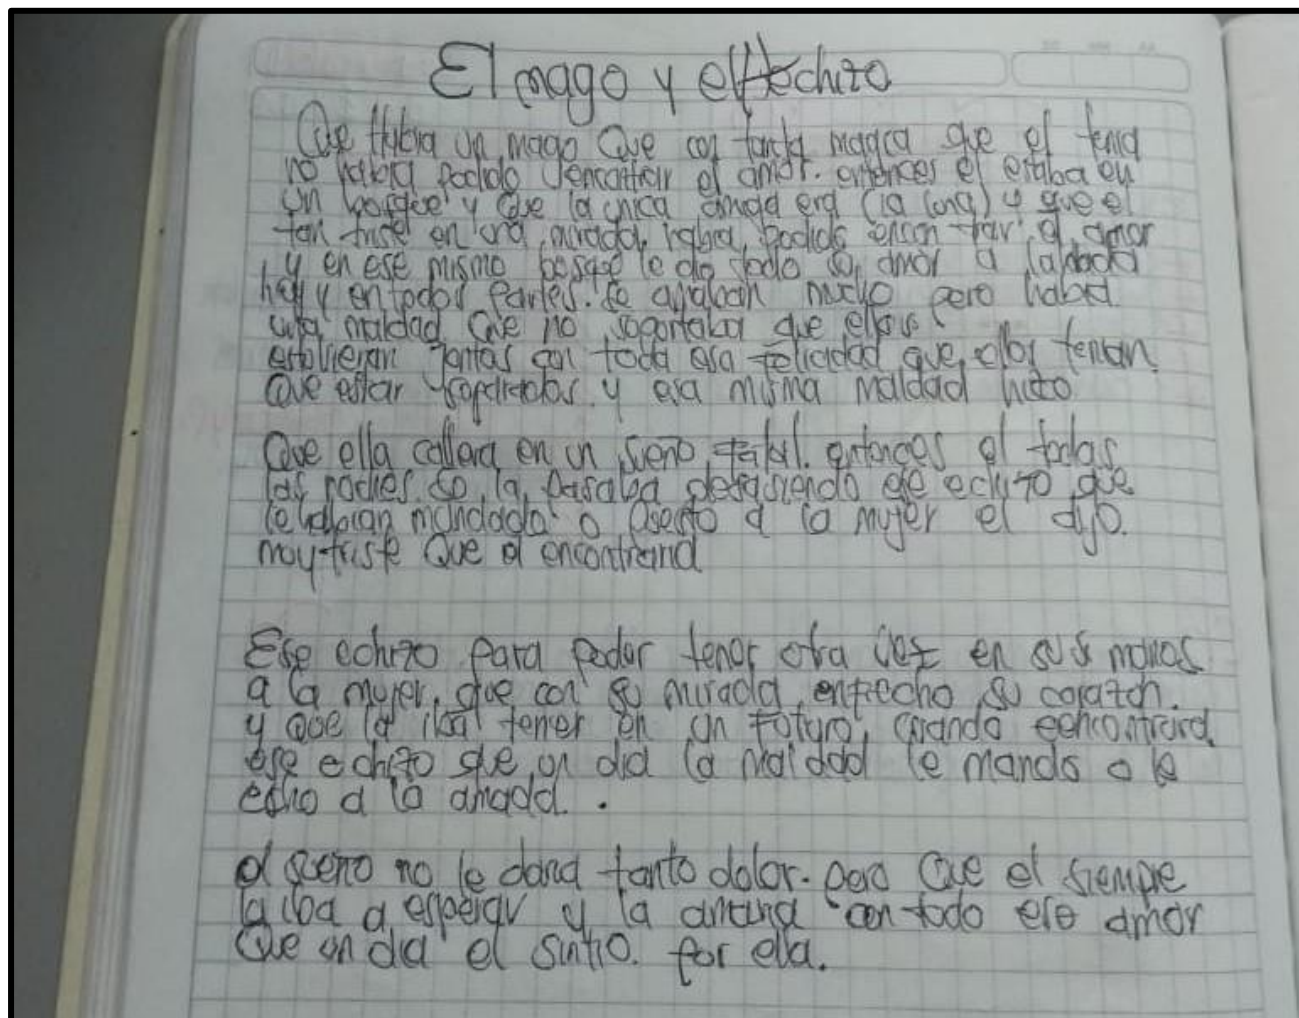 El mago y el Hechizo
Que Habia un mago Que con tanta magia que el tenia
no habia podido encontrar el amor. entonces el estaba en
un bosque y Que la unica amiga era (la luna) y que el
tan triste en una mirada habia podido encontrar el amor
y en ese mismo bosque le dio todo su amor a la amada
hay y en todos Partes. Se amaban mucho pero habia
una maldad Que no soportaba que ellos
estuvieran juntos con toda esa felicidad que ellos tenian
Que estar separados y esa misma maldad hizo
Que ella callera en un sueño fatal. entonces el todas
las noches se la pasaba desasiendo ese echizo que
le habian mandado o puesto a la mujer el dijo.
muy triste Que el encontraria
Ese echizo para poder tener otra vez en sus manos
a la mujer, que con su mirada enfecho su corazon.
y Que la iba tener en un futuro cuando echcontrara
ese echizo que un dia la maldad le mando o le
echo a la amada.
el sueño no le daria tanto dolor. pero Que el siempre
la iba a esperar y la amaria con todo ese amor
Que un dia el sintio. por ella.